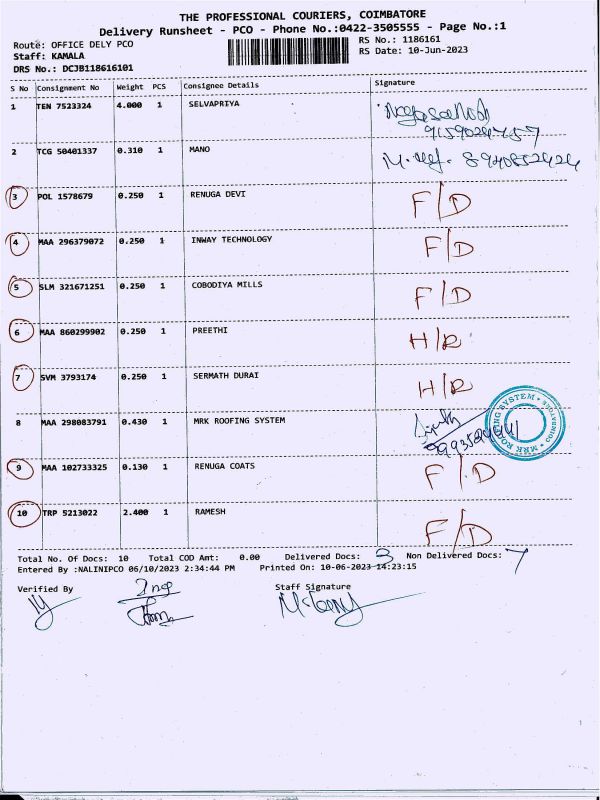 THE PROFESSIONAL COURIERS, COIMBATORE
Delivery Runsheet - PCO - Phone No.:0422-3505555 - Page No.:1
Route: OFFICE DELY PCO RS No.: 1186161
Staff: KAMALA RS Date: 10-Jun-2023
DRS No.: DCJB118616101
S No Consignment No Weight PCS Consignee Details Signature
1 TEN 7523324 4.000 1 SELVAPRIYA
2 TCG 50401337 0.310 1 MANO
3 POL 1578679 0.250 1 RENUGA DEVI F/D
4 MAA 296379072 0.250 1 INWAY TECHNOLOGY F/D
5 SLM 321671251 0.250 1 COBODIYA MILLS F/D
6 MAA 860299902 0.250 1 PREETHI H/R
7 SVM 3793174 0.250 1 SERMATH DURAI H/R
8 MAA 298083791 0.430 1 MRK ROOFING SYSTEM
MRK ROOFING SYSTEM * COIMBATORE *
9 MAA 102733325 0.130 1 RENUGA COATS F/D
10 TRP 5213022 2.400 1 RAMESH F/D
Total No. Of Docs: 10 Total COD Amt: 0.00 Delivered Docs: 3 Non Delivered Docs: 7
Entered By :NALINIPCO 06/10/2023 2:34:44 PM Printed On: 10-06-2023 14:23:15
Verified By Staff Signature